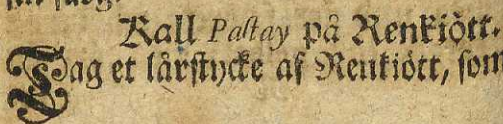 Kall Pastay på Renkiött.
Tag et lårstycke af Renkiött, som